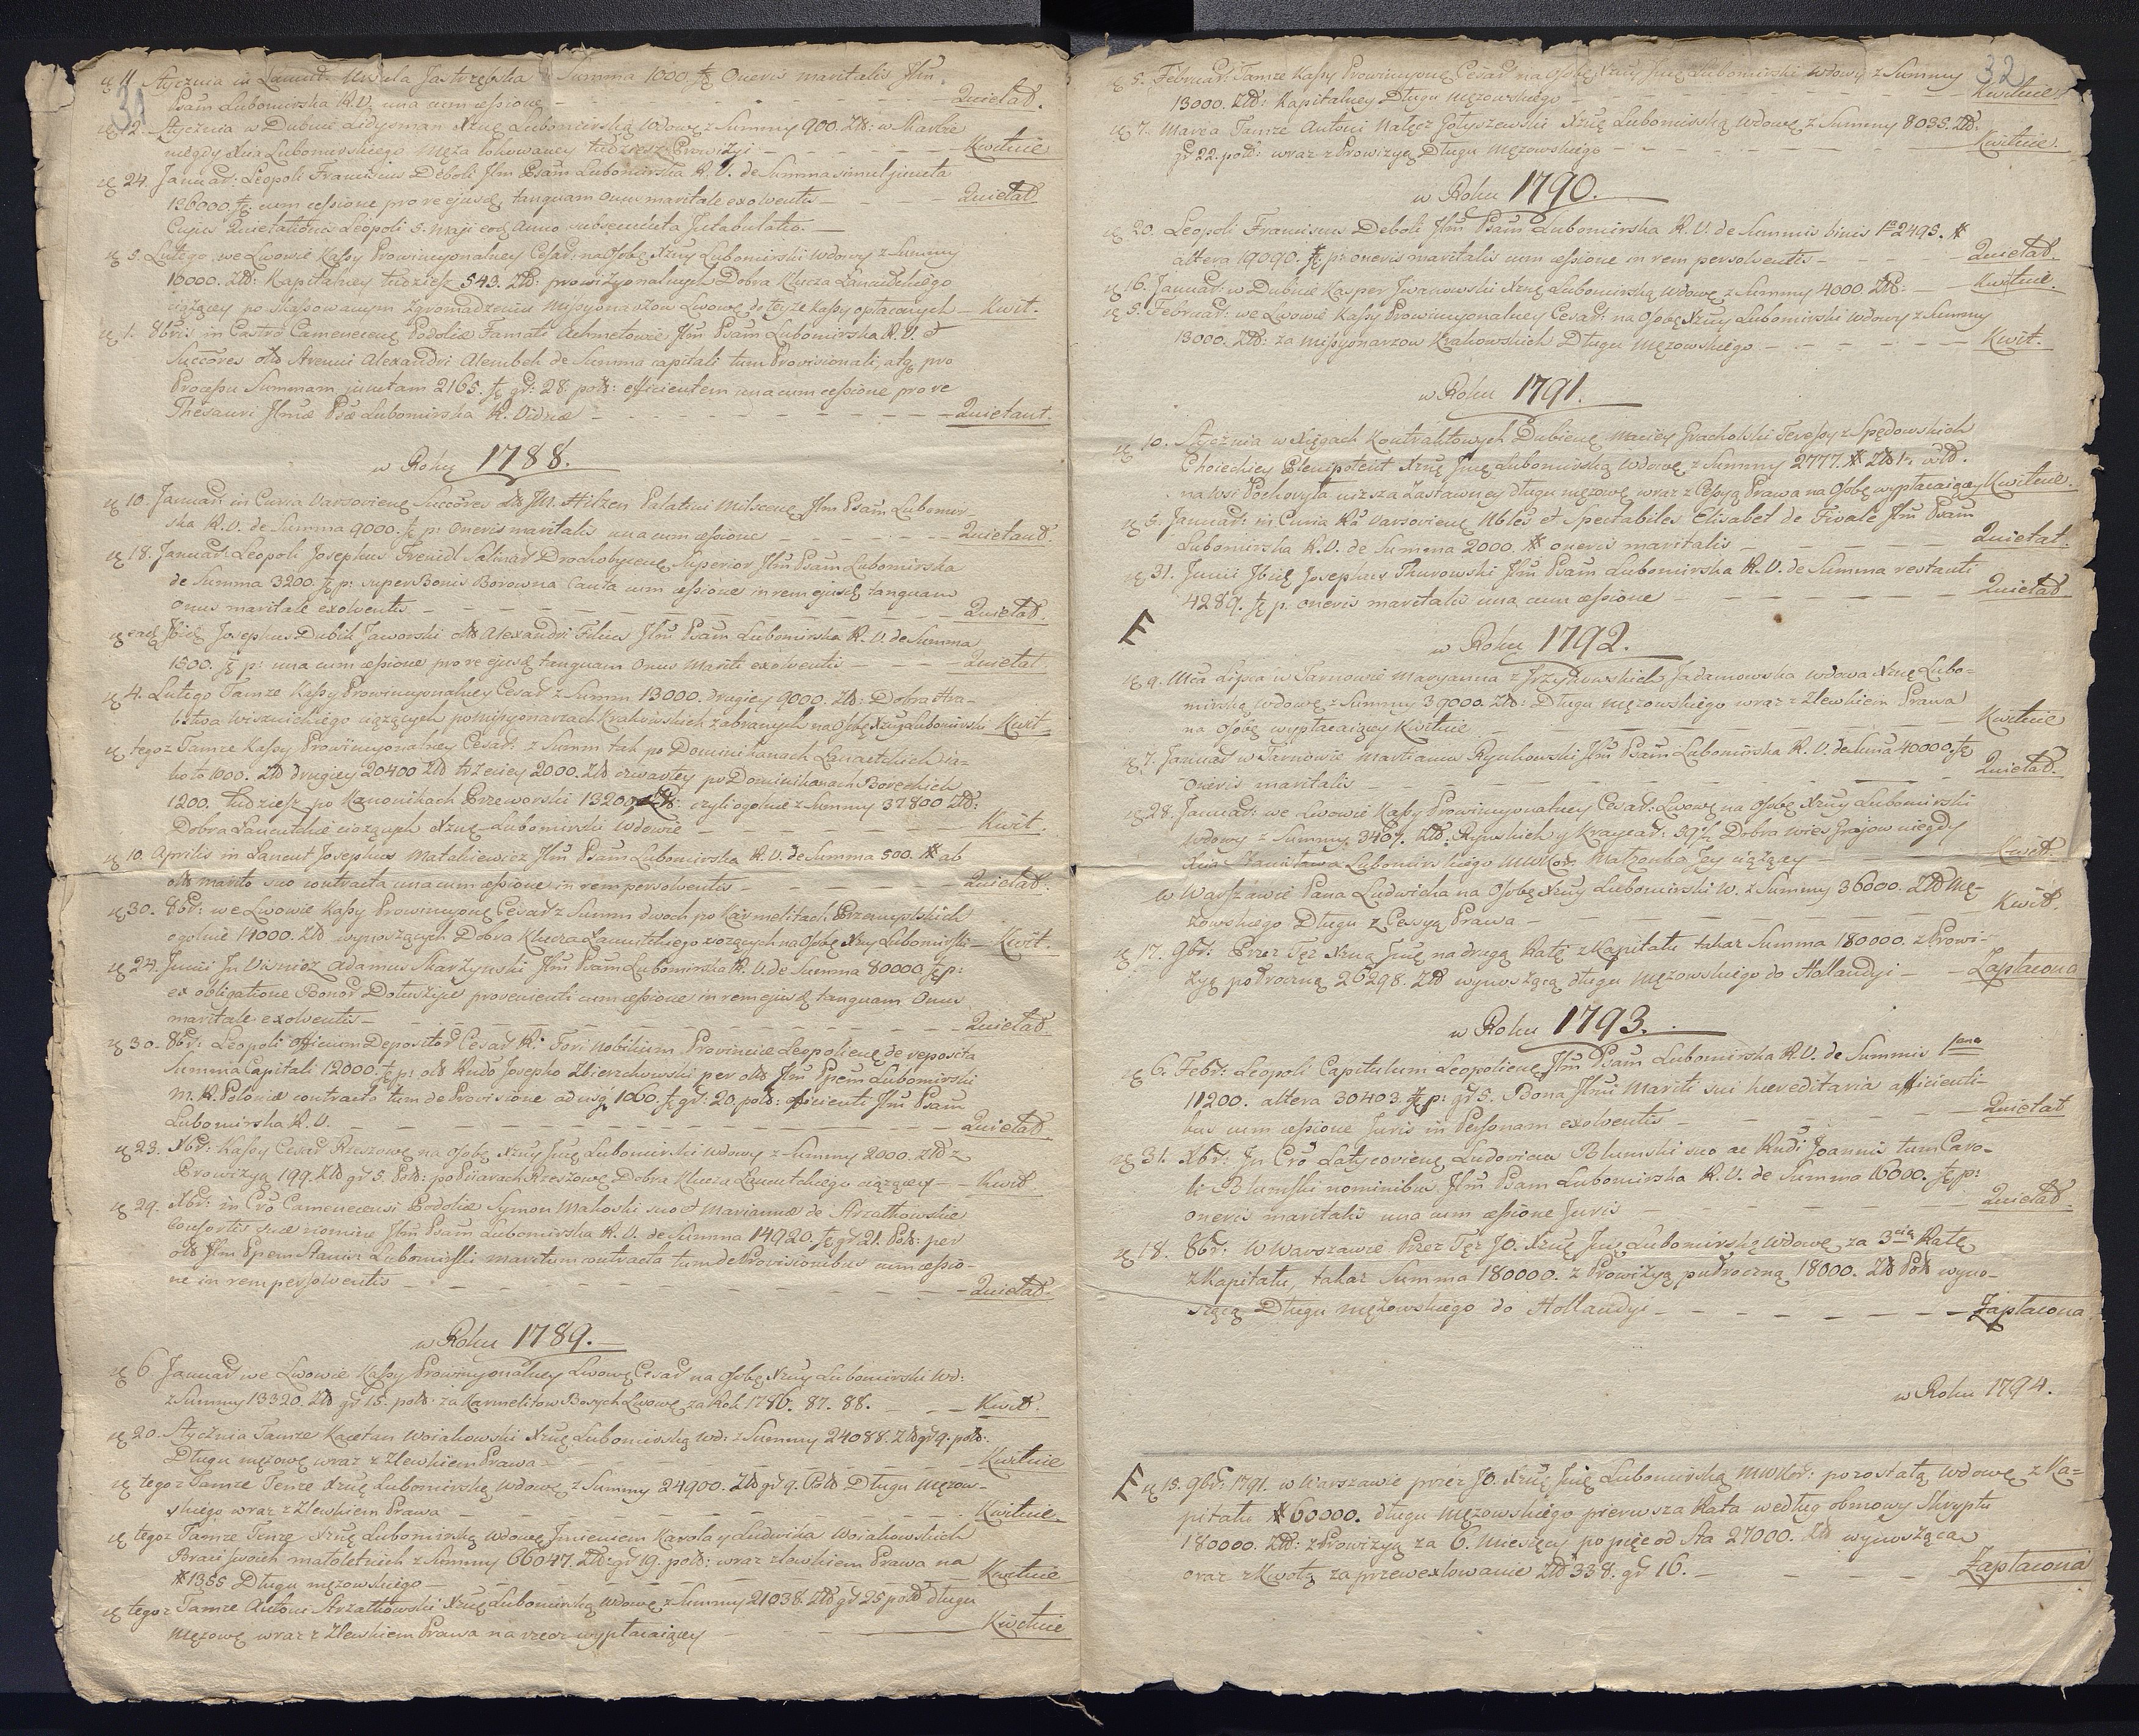 31
11. Stycznia in Łancut Ursula Jastrzębska Summa 1000. Oneris maritalis Jllm
Psam Lubomirska R. V. una cum cessione Quietat.
12. Stycznia w Dubnie Xznę Lubomirską Wdowę z Summy 900. Zlł: w Skarbie
niegdy Xcia Lubomirskiego Męża lokowaney tudziesz Prowizyi Kwituie
24. Januar: Leopoli Franciscus Deboli Jllm Psam Lubomirska R. V. de Summa simul juncta
136000. cum cessione pro re ejusd. tanquam Onus maritale exolventis Quietat
Cujus Quietationis Leopoli 5. Maji eod Anno subsecuta Intabulatio.
5. Lutego, we Lwowie Kassy Prowincyonalney Cesar: na Osobę Xzny Lubomirski Wdowy z Summy
10000. Zlł: Kapitalney tudziesz 543. Zlł: prowizyonalnych Dobra Klucza Łancutskiego
ciążącey po skasowanym Zgromadzeniu Missyonarzow Lwowę do teyze Kassy opłacanych Kwit.
1. 8bris in Castro Camenecenę Podoliæ Famati Achmetowie Jllm Psam Lubomirska R. V. &
Succores olb Strenui Alexandri Alembek de Summa capitali tum Provisionali, atq pro
Processu Summam junctam 2165. gr: 28. pols: efficientem una cum cessione pro re
Thesauri Jllmæ Psæ Lubomirska R. Viduæ Quietant.
w Roku 1788.
10. Januar: in Curia Varsovienę Succores olb JM. Hilzen Palatini Milscenę Jllm Psam Lubomir-
ska R. V. de Summa 9000. p: Oneris maritalis una cum cessione Quietant.
18. Januar: Leopoli Josephus Freudl Salinar Drochobycenę Superior Jllm Psam Lubomirska
de Summa 3200. p: super Bonis Borowna Cauta cum cessione in rem ejusd tanquam
Onus maritale exolventis Quietat.
ead Ibid Josephus Dubik Jaworski olb Alexandri Filius Jllm Psam Lubomirska R. V. de Summa
1500. p: una cum cessione pro re ejusd tanquam Onus Mariti exolventis Quietat
4. Lutego Tamze Kassy Prowincyonalney Cesar z Summ 13000. drugiey 9000. Zlł: Dobra Hra-
bstwa Wisnickiego ciążących po Missyonarzach Krakowskich zabranych na Osobę Xzny Lubomirski Kwit
tegoz Tamze Kassy Prowincyonalney Cesar: z Summ tak po Dominikanach Łancutskich ia-
ko to 1000. Zlł drugiey 20400 Zlł trzeciey 2000. Zlł czwartey po Dominikanach Boreckich
1200. tudziesz po Kanonikach Przeworski 13200 Zlł: czyli ogolnie z Summy 37800 Zlł:
Dobra Łancutskie ciążących Xznę Lubomirski Wdowie Kwit.
10. Aprilis in Łancut Josephus Matakiewicz Jllm Psam Lubomirska R. V. de Summa 500. # ab
olb marito suo contracta una cum cessione in rem persolventis Quietat.
30. 8br: we Lwowie Kassy Prowincyonę Cesar z Summ dwoch po Karmelitach Przemyslskich
ogolnie 14000. Zlł wynoszących Dobra Klucza Łancutskiego ciążących na Osobę Xzny Lubomirski Kwit.
24. Junii In Adamus Skarzynski Jllm Psam Lubomirska R. V. de Summa 80000. p:
ex obligatione Bonor provenienti cum cessione in rem ejusd tanquam Onus
maritale exolventis Quietat.
30. 8br: Leopoli Officium Depositor Cesar R. Fori Nobilium Provinciæ Leopolienę de reposita
Summa Capitali 12000. p: olb Rndo Josepho Zbierzchowski per olb Jllm Ppem Lubomirski
M. R. Poloniæ contracta tum de Provisione ad usq 1060. gr: 20. pols: efficienti Jllm Psam
Lubomirska R. V. Quietat.
23. Xbr: Kassy Cesar Rzeszowę na Osobę Xzny Jmę Lubomirski Wdowy z Summy 2000. Zlł z
Prowizyą 199. Zlł gr 5. Pols: po Piiarach Rzeszowę Dobra Klucza Łancutskiego ciążącey Kwit.
29. Xbr: in Cro Camenecensi Podoliæ Symon Makoski suo et Mariannæ de Strzałkowskie
Consortis suæ nomine Jllm Psam Lubomirska R. V. de Summa 14920. gr 21. Pols: per
olb Jllm Ppem Stanisł Lubomirski maritum contracta tum de Provisionibus cum cessio-
ne in rem persolventis Quietat.
w Roku 1789.
6. Januar we Lwowie Kassy Prowincyonalney Lwowę Cesar na Osobę Xzny Lubomirski Wd:
z Summy 13320. Zlł gr 15. pols: za Karmelitow Bosych Lwowę za Rok 1786. 87. 88. Kwit.
20. Stycznia Tamze Kaietan Woiakowski Xznę Lubomirską Wd: z Summy 24088. Zlł gr 9. pols:
Długu mężowę wraz z Zlewkiem Prawa Kwituie
tegoz Tamze Tenze Xznę Lubomirską Wdowę z Summy 24900. Zlł gr 9. Pols Długu Mężow-
skiego wraz z Zlewkiem Prawa Kwituie.
tegoz Tamze Tenze Xznę Lubomirską Wdowę Jmieniem Karola y Ludwika Woiakowskich
Braci swoich małoletnich z Summy 66047. Zlł: gr 19. pols: wraz zlewkiem Prawa na
# 1355 Długu mężowskiego Kwituie
tegoz Tamze Antoni Strzałkowski Xznę Lubomirską Wdowę z Summy 21038. Zlł gr 25 pols długu
Mężowę wraz z Zlewkiem Prawa na rzecz wypłacaiącey Kwituie
32
5. Februar: Tamze Kassy Prowincyonę Cesar na Osobę Xzny Jmę Lubomirski Wdowy z Summy
13000. Zlł: Kapitalney Długu Mężowskiego Kwituie.
7. Marca Tamze Antoni Nałęcz Gołyszewski Xznę Lubomirską Wdowę z Summy 8033. Zlł:
gr 22. pols: wraz z Prowizyą Długu Mężowskiego Kwituie.
w Roku 1790.
20. Leopoli Franciscus Deboli Jllm Psam Lubomirska R. V. de Summis binis 1ma 2495. #
altera 19090. p: oneris maritalis cum cessione in rem persolventis Quietat.
16. Januar: w Dubnie Kasper Xznę Lubomirską Wdowę z Summy 4000 Zlł: Kwituie.
5. Februar: we Lwowie Kassy Prowincyonalney Cesar: na Osobę Xzny Lubomirski Wdowy z Summy
13000. Zlł: za Missyonarzow Krakowskich Długu Mężowskiego Kwit.
w Roku 1791.
10. Stycznia w Xięgach Kontraktowych Dubienę Maciey Gracholski Teressy z Spędowskich
Choieckiey Plenipotent Xznę Jmę Lubomirską Wdowę z Summy 2777. # Zlł
na Wsi Pochoryła nizsza Zastawney długu mężowę wraz z Cessyą Prawa na Osobę wypłacaiącey Kwituie.
5. Januar: in Curia Ra Varsovienę Nbles et Spectabiles Elisabet de Jllm Psam
Lubomirska R. V. de Summa 2000. # oneris maritalis Quietat.
31. Junii Ibid Josephus Thurowski Jllm Psam Lubomirska R. V. de Summa restanti
4289. p. oneris maritalis una cum cessione Quietat
F
w Roku 1792.
9. Mca Lipca w Tarnowie Maryanna z Jadamowska Wdowa Xznę Lubo-
mirską Wdowę z Summy 39000. Zlł: Długu Mężowskiego wraz z Zlewkiem Prawa
na Osobę wypłacaiącey Kwituie Kwituie
7. Januar w Tarnowie Martianus Rychowski Jllm Psam Lubomirska R. V. de Suma 40000.
Oneris maritalis Quietat.
28. Januar: we Lwowie Kassy Prowincyonalney Cesar: Lwowę na Osobę Xzny Lubomirski
Wdowy z Summy 3467. Zlł: Rynskich y Kraycar: 39 Dobra Wies Grajow niegdy
Xcia Stanisława Lubomirskiego MWKor. Małzonka Jey ciążącey Kwit.
w Warszawie Pana Ludwicka na Osobę Xzny Lubomirski W. z Summy 36000. Zlł Mę-
zowskiego Długu z Cessyą Prawa Kwit.
17. 9br: Przez Tęż Xzną Jmę na drugą Ratę z Kapitału także Summa 180000. z Prowi-
zyą połroczną 26298. Zlł wynoszącą długu Mężowskiego do Hollandyi Zapłacona
w Roku 1793.
6. Febr: Leopoli Capitulum Leopolienę Jllm Psam Lubomirska R. V. de Summis 1ma
11200. altera 30403. p: gr 5. Bona Jllmi Mariti sui hæreditaria afficienti-
bus cum cessione Juris in Personam exolventis Quietat
31. Xbr: In Cro Latycovienę Ludovicus Blumski suo ac Rndi Joannis tum Caro-
li Blumski nominibus Jllm Psam Lubomirska R. V. de Summa 16000. p:
oneris maritalis una cum cessione Juris Quietat
18. 8br: W Warszawie Przez Tęż JO. Xznę Jmę Lubomirską Wdowę za 3cią Ratę
z Kapitału, także Summa 180000. z Prowizyą pułroczną 18000. Zlł Pols wyno-
szącą Długu mężowskiego do Hollandyi Zapłacona
w Roku 1794.
F 15. 9br: 1791. w Warszawie przez JO. Xznę Jmę Lubomirską MWKor: pozostałą Wdowę z Ka-
pitału # 60000. długu Mężowskiego pierwsza Rata według obmowy Skryptu
180000. Zlł: z Prowizyą za 6. Miesięcy po pięc od Sta 27000. Zlł wynosząca
oraz z Kwotą za przewexlowanie Zlł 338. gr 16. Zapłacona